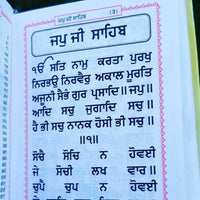 ਜਪੁ ਜੀ ਸਾਹਿਬ
ਜਪੁ ਜੀ ਸਾਹਿਬ
ੴ ਸਤਿ ਨਾਮੁ ਕਰਤਾ ਪੁਰਖੁ
ਨਿਰਭਉ ਨਿਰਵੈਰੁ ਅਕਾਲ ਮੂਰਤਿ
ਅਜੂਨੀ ਸੈਭੰ ਗੁਰ ਪ੍ਰਸਾਦਿ॥ਜਪੁ॥
ਆਦਿ ਸਚੁ ਜੁਗਾਦਿ ਸਚੁ॥
ਹੈ ਭੀ ਸਚੁ ਨਾਨਕ ਹੋਸੀ ਭੀ ਸਚੁ॥
॥੧॥
ਸੋਚੈ ਸੋਚਿ ਨ ਹੋਵਈ
ਜੇ ਸੋਚੀ ਲਖ ਵਾਰ॥
ਚੁਪੈ ਚੁਪ ਨ ਹੋਵਈ